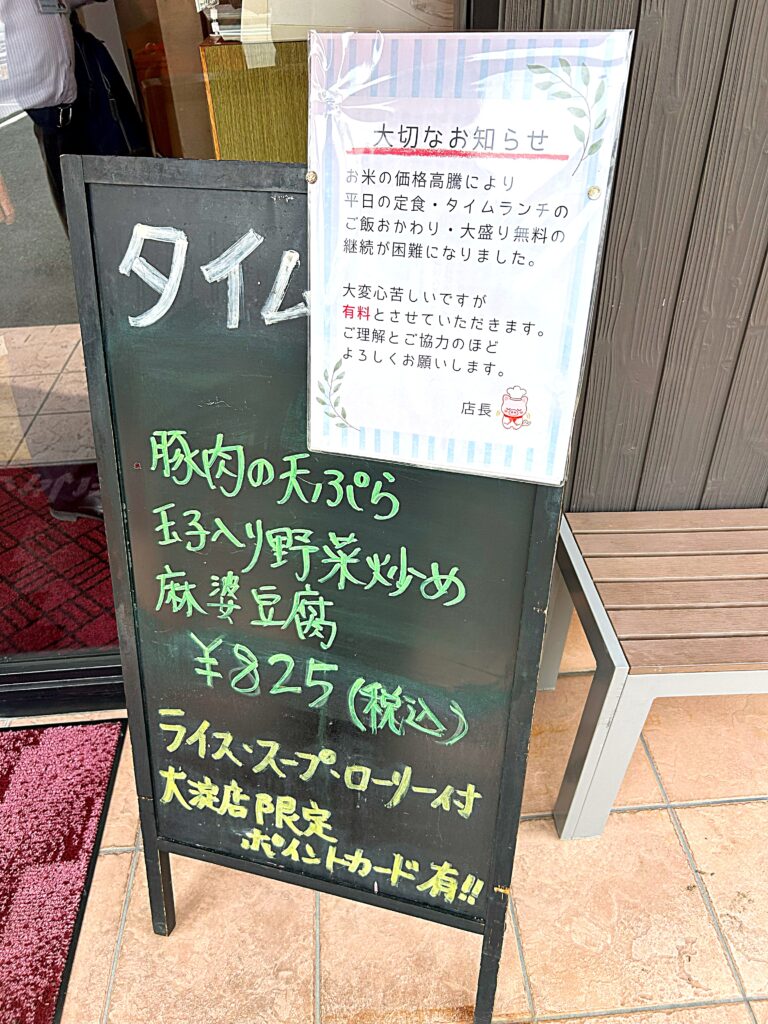 大切なお知らせ
お米の価格高騰により
平日の定食・タイムランチの
ご飯おかわり・大盛り無料の
継続が困難になりました。
大変心苦しいですが
有料とさせていただきます。
ご理解とご協力のほど
よろしくお願いします。
店長
タイム
豚肉の天ぷら
玉子入り野菜炒め
麻婆豆腐
¥825(税込)
ライス・スープ・ローリー付
大淀店限定
ポイントカード有!!